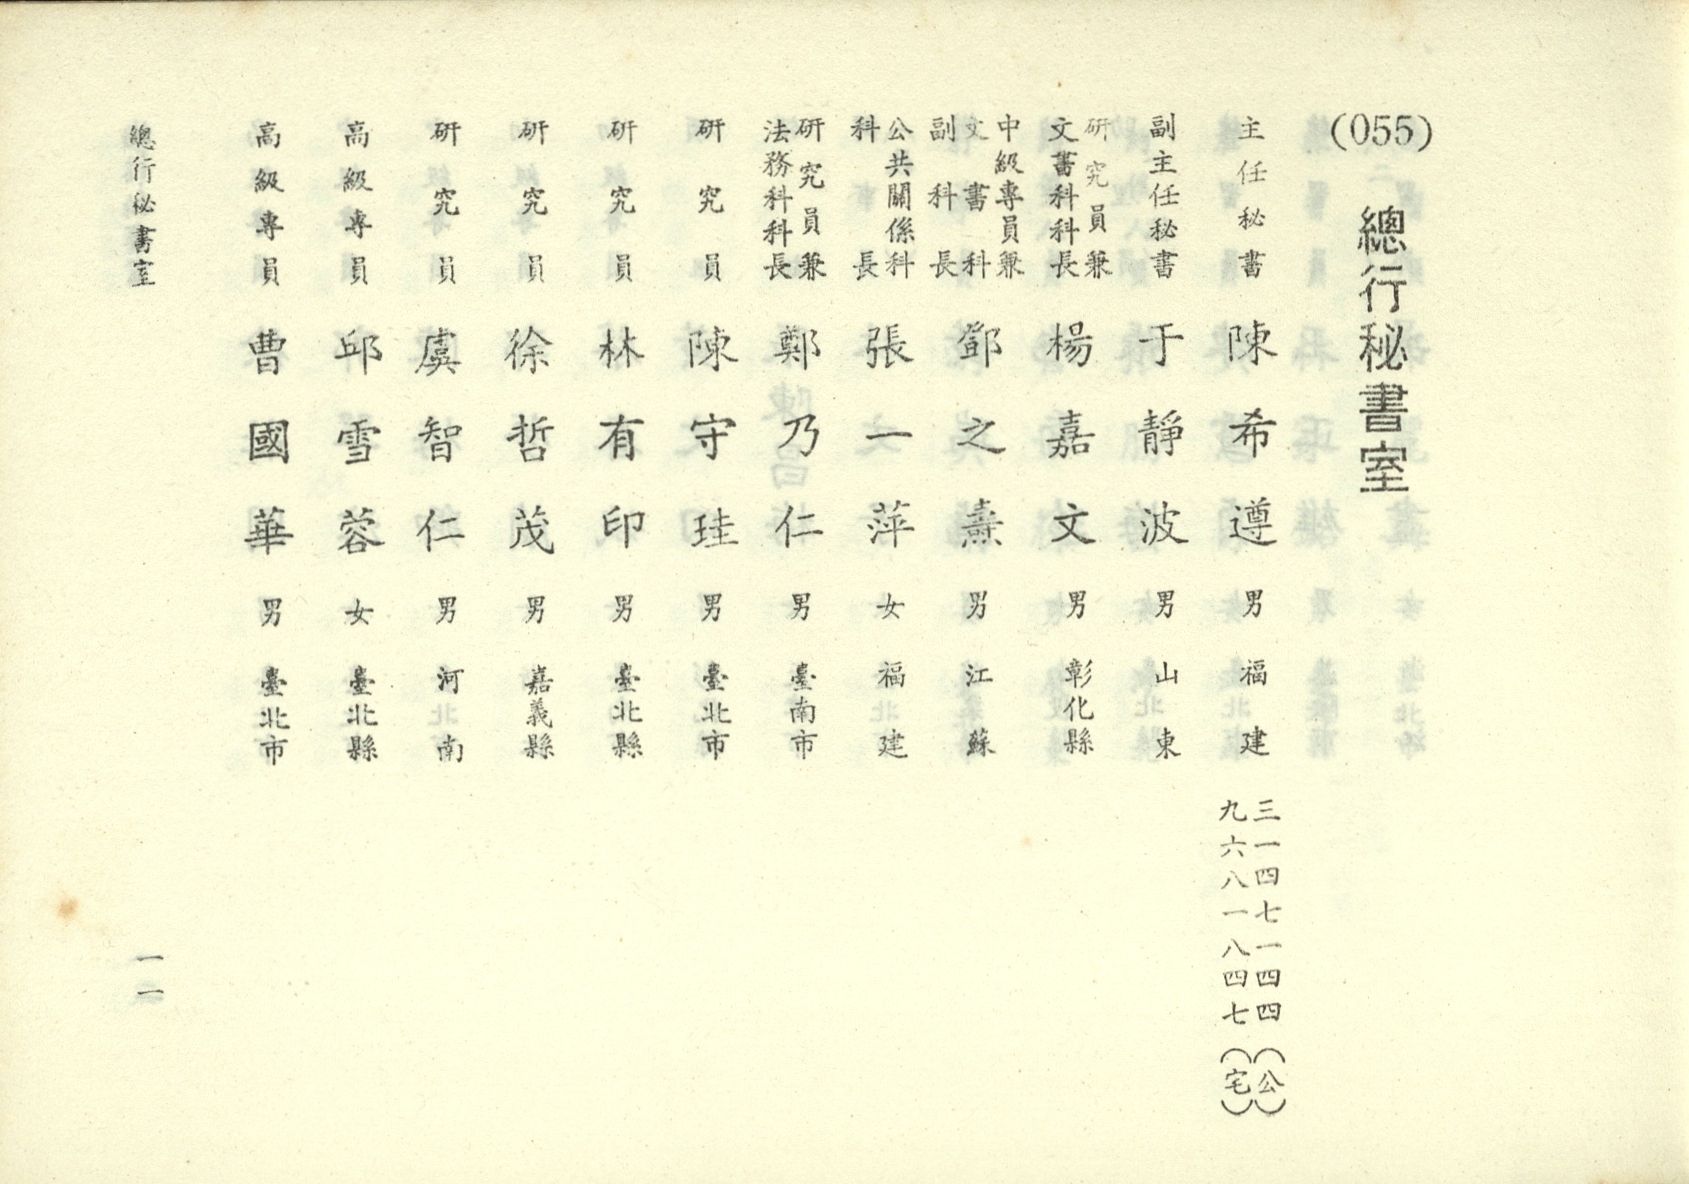 (055) 總行秘書室
主任秘書 陳希遵 男 福建 三一四七一四四(公) 九六八一八四七(宅)
副主任秘書 于靜波 男 山東
研究員兼文書科科長 楊嘉文 男 彰化縣
中級專員兼文書科副科長 鄧之熹 男 江蘇
公共關係科科長 張一萍 女 福建
研究員兼法務科科長 鄭乃仁 男 臺南市
研究員 陳守珪 男 臺北市
研究員 林有印 男 臺北縣
研究員 徐哲茂 男 嘉義縣
研究員 虞智仁 男 河南
高級專員 邱雪蓉 女 臺北縣
高級專員 曹國華 男 臺北市
總行秘書室 一一